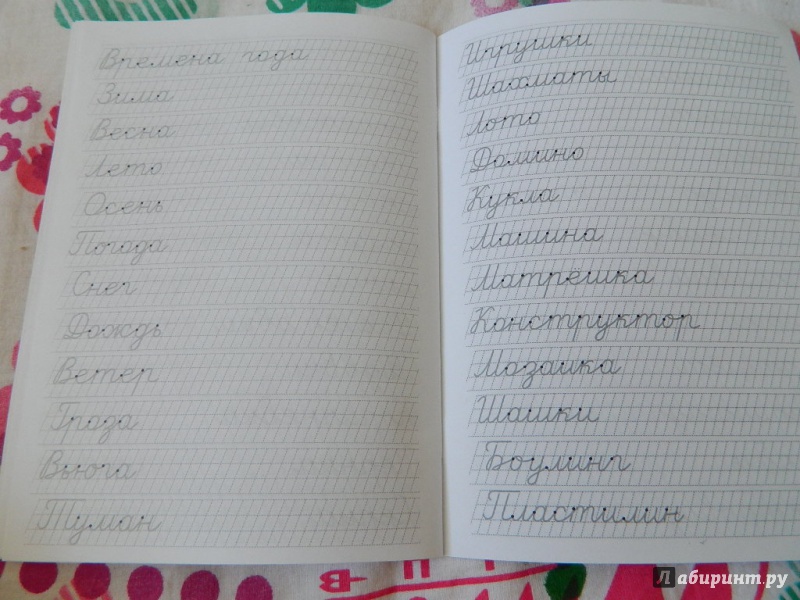 Времена года
Зима
Весна
Лето
Осень
Погода
Снег
Дождь
Ветер
Гроза
Вьюга
Туман
Игрушки
Шахматы
Лото
Домино
Кукла
Машина
Матрёшка
Конструктор
Мозаика
Шашки
Боулинг
Пластилин
Лабиринт.ру